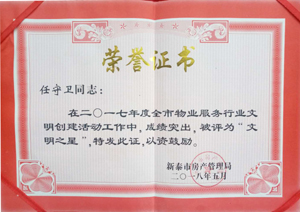 荣誉证书
任守卫同志：
在二〇一七年度全市物业服务行业文
明创建活动工作中，成绩突出，被评为“文
明之星”，特发此证，以资鼓励。
新泰市房产管理局
二〇一八年五月